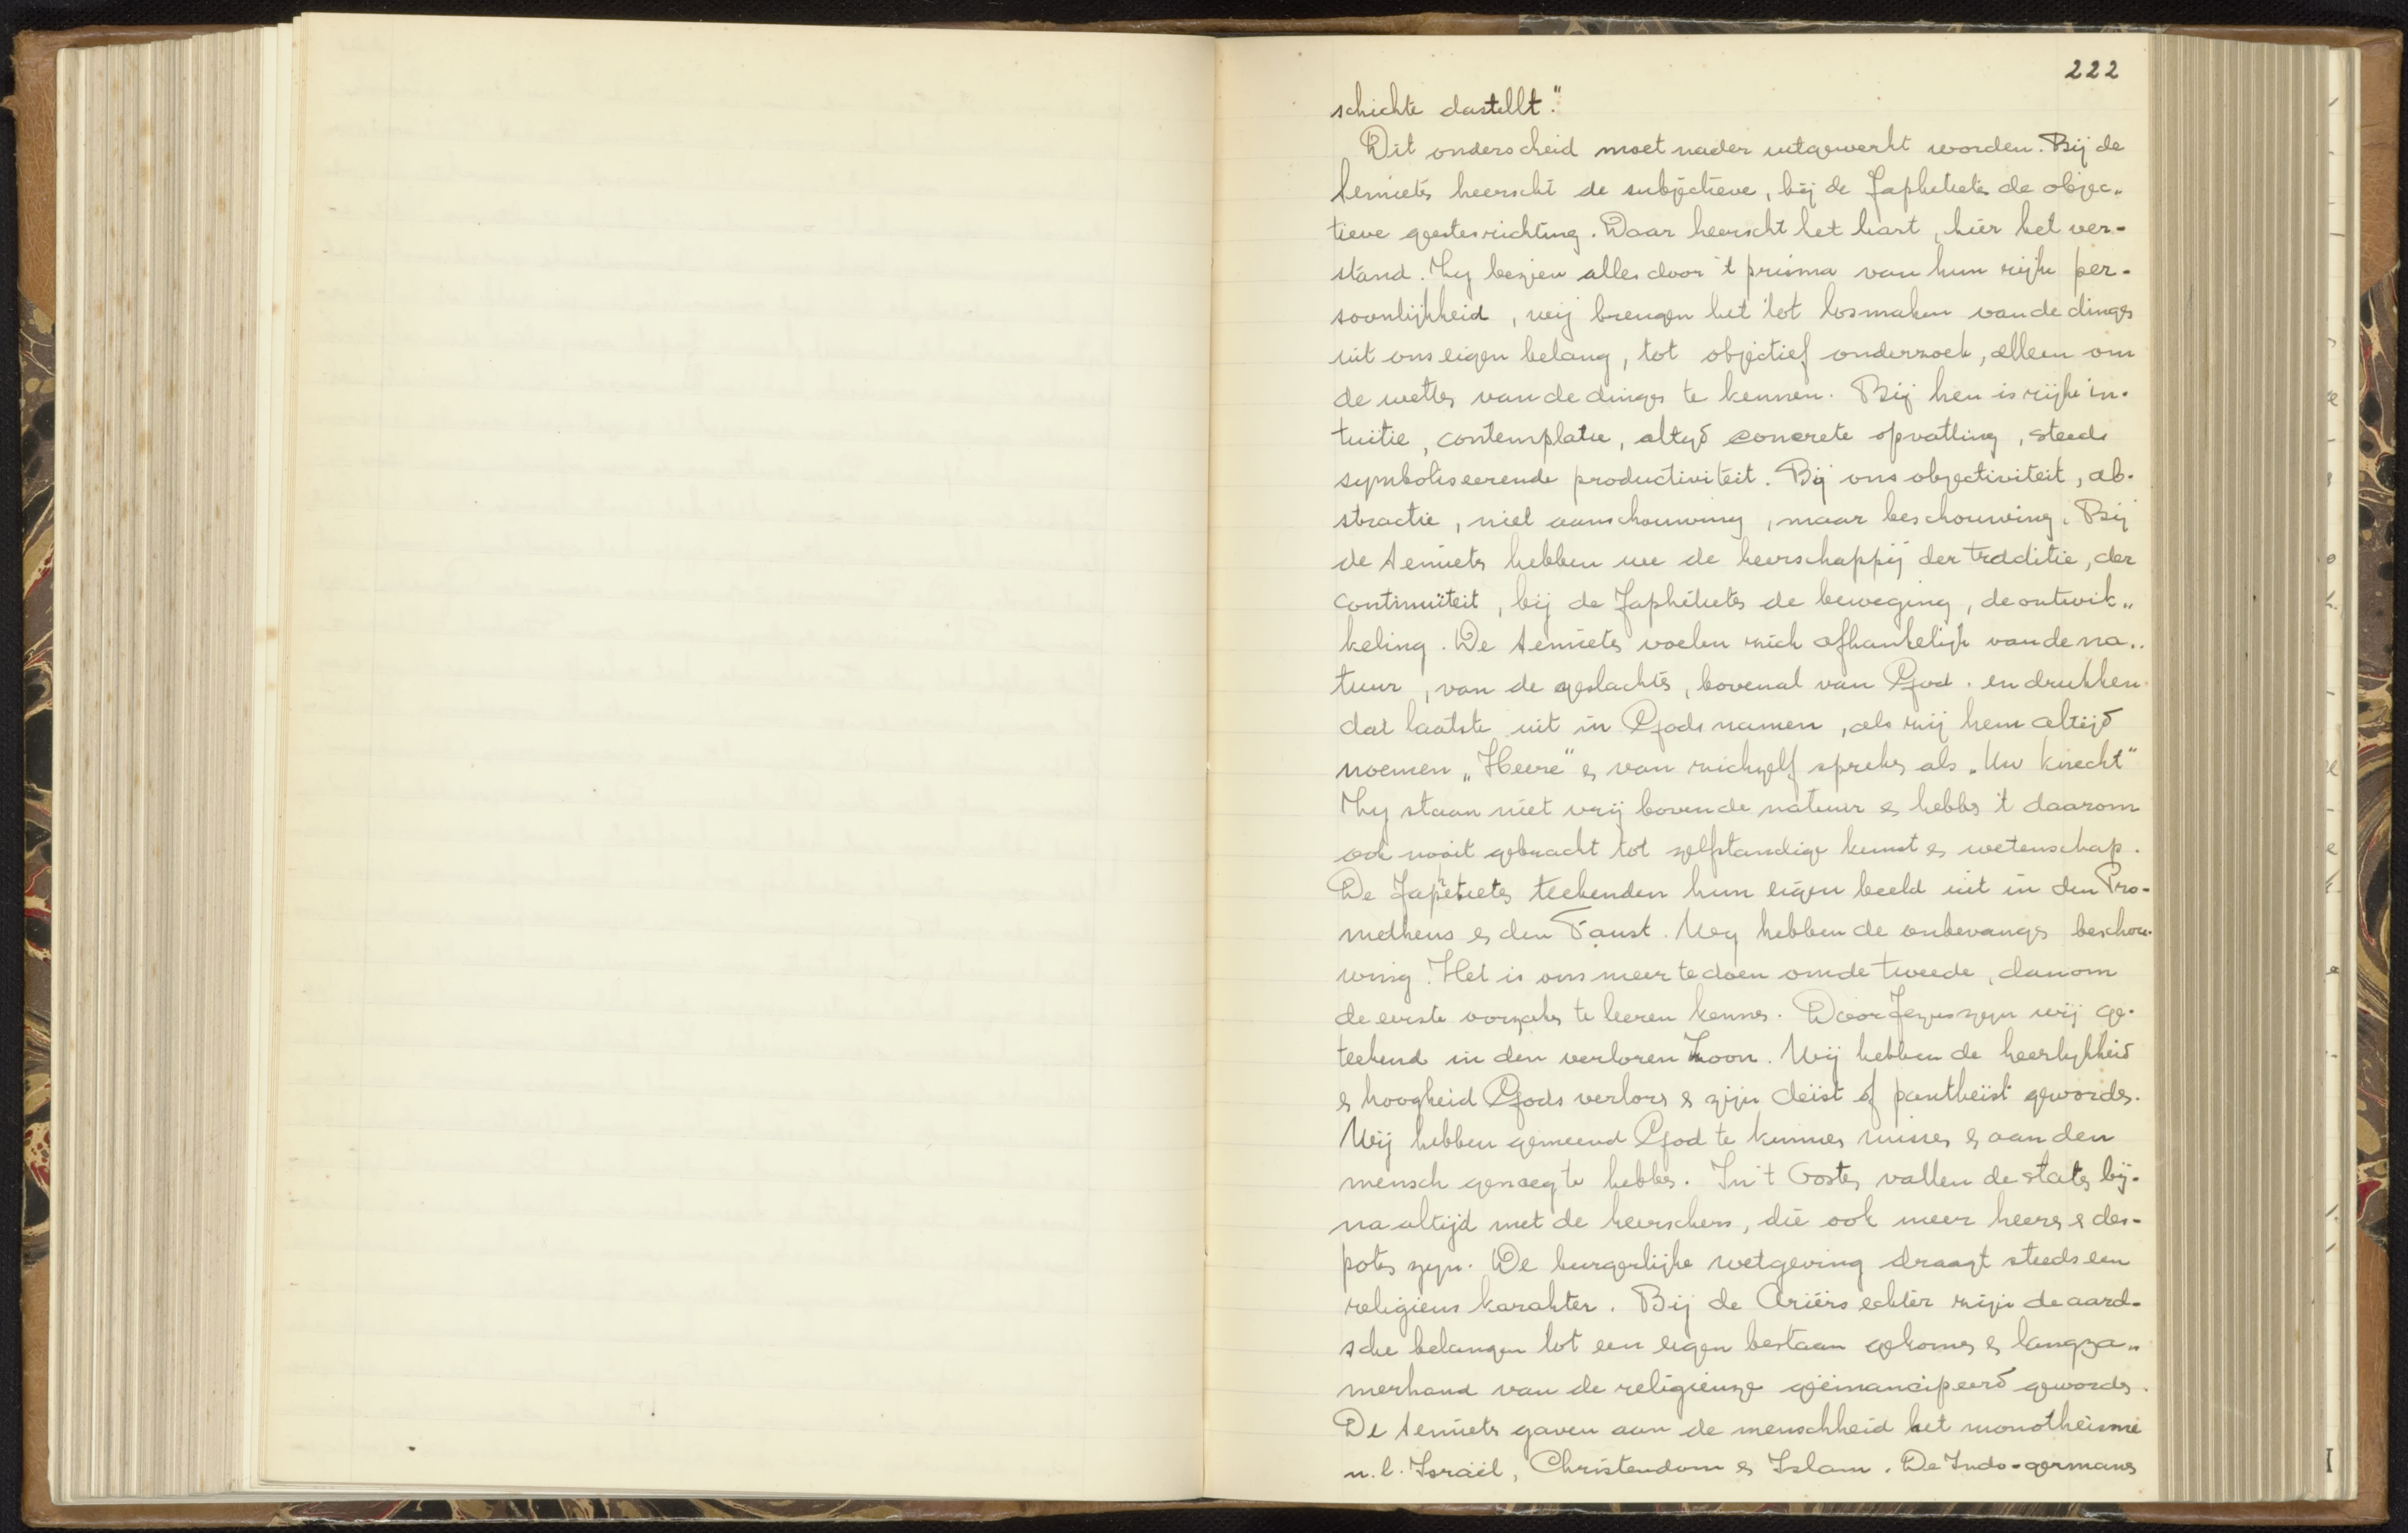 222
schichte dastellt."
Dit onderscheid moet nader uitgewerkt worden. Bij de
Semiets heerscht de subjectieve, bij de Japhetiets de objec„
tieve geestesrichting. Daar heerscht het hart, hier het ver-
stand. Zy bezien alles door 't prisma van hun rijke per-
soonlijkheid, wij brengen het tot losmaken van de dings
uit ons eigen belang, tot objectief onderzoek, alleen om
de wetts van de dings te kennen. Bij hen is rijke in-
tuïtie, contemplatie, altyd concrete opvatting, steeds
symboliseerende productiviteit. Bij ons objectiviteit, ab-
stractie, niet aanschouwing, maar beschouwing. Bij
de semiets hebben we de heerschappij der traditie, der
continuïteit, bij de Japhetiets de beweging, de ontwik„
keling. De semiets voelen zich afhankelijk van de na„
tuur, van de geslachts, bovenal van God. en drukken
dat laatste uit in Gods namen, als zij hem altijd
noemen „Heere" es van zichzelf spreks als „Uw knecht"
Zy staan niet vrij boven de natuur es hebbs 't daarom
ook nooit gebracht tot zelfstandige kunst es wetenschap.
De Japhetiets teekenden hun eigen beeld uit in den Pro-
metheus es den Faust. Wy hebben de onbevangs beschou-
wing. Het is ons meer te doen om de tweede, dan om
de eerste oorzaks te leeren kenns. Door Jezus zyn wij ge-
teekend in den verloren Zoon. Wij hebben de heerlykheid
es hoogheid Gods verlors es zijn deïst of pantheïst gewords.
Wij hebben gemeend God te kunnes misses es aan den
mensch genoeg te hebbs. In 't Oosts vallen de stats bij-
na altijd met de heerschers, die ook meer heers es des-
pots zyn. De burgerlijke wetgeving draagt steeds een
religieus karakter. Bij de Ariërs echter zijn de aard-
sche belangen tot een eigen bestaan gekoms es langza„
merhand van de religieuze geëmancipeerd gewords.
De semiets gaven aan de menschheid het monotheisme
n.l. Israël, Christendom es Islam. De Indo-germans